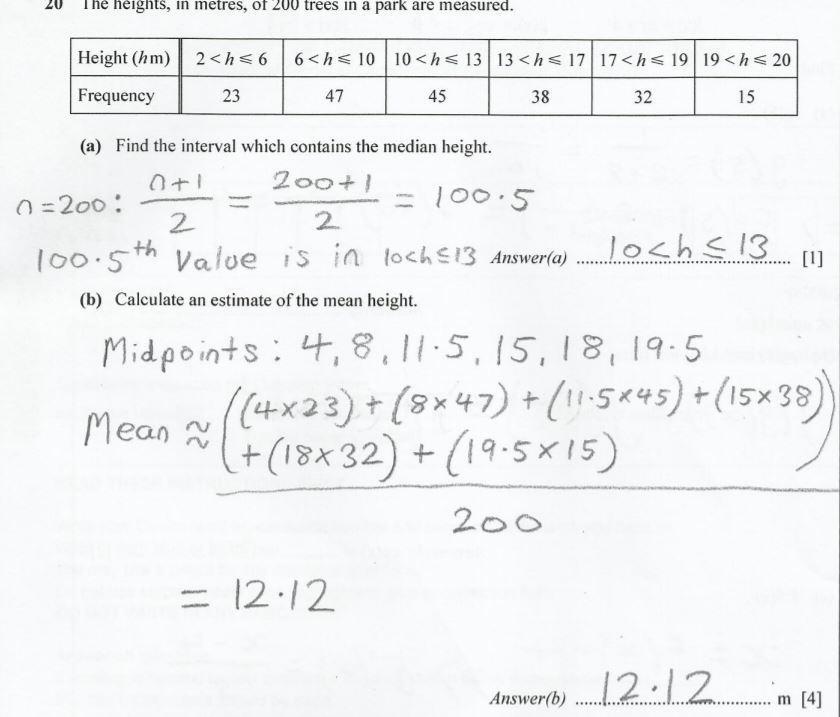 20 The heights, in metres, of 200 trees in a park are measured.
Height (h m) 2 < h ⩽ 6 6 < h ⩽ 10 10 < h ⩽ 13 13 < h ⩽ 17 17 < h ⩽ 19 19 < h ⩽ 20
Frequency 23 47 45 38 32 15
(a) Find the interval which contains the median height.
n=200: (n+1)/2 = (200+1)/2 = 100.5
100.5th Value is in 10<h≤13 Answer(a) 10<h≤13 [1]
(b) Calculate an estimate of the mean height.
Midpoints: 4, 8, 11.5, 15, 18, 19.5
Mean ≈ ((4×23)+(8×47)+(11.5×45)+(15×38)
+(18×32)+(19.5×15))
200
= 12.12
Answer(b) 12.12 m [4]